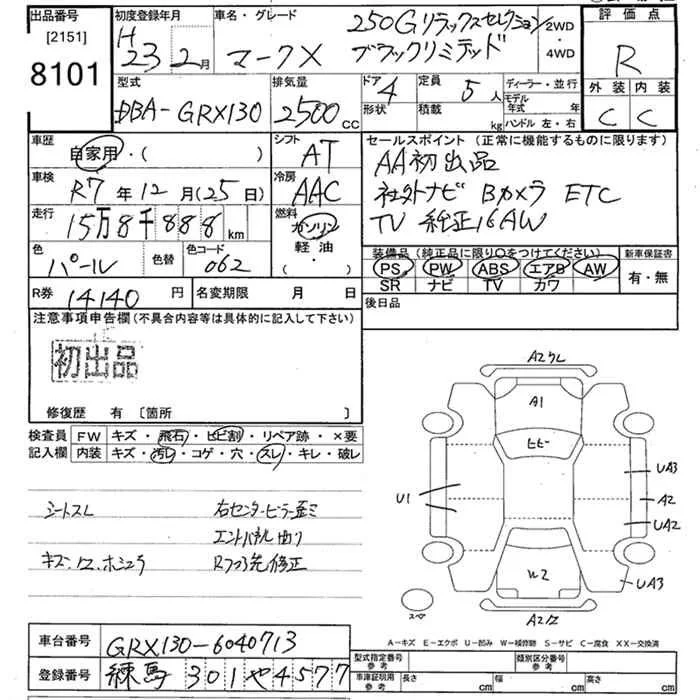 出品番号
[2151]
8101
初度登録年月
H
23 2月
車名・グレード
マークX
250Gリラックスセレクション
ブラックリミテッド
2WD
・
4WD
評価点
R
外装 内装
C C
型式
DBA-GRX130
排気量
2500cc
ドア 4
形状
定員 5人
積載 kg
ディーラー・並行
モデル年式 年
ハンドル 左・右
車歴
自家用・( )
シフト
AT
セールスポイント (正常に機能するものに限ります)
AA初出品
社外ナビ Bカメラ ETC
TV 純正16AW
車検
R7年12月(25日)
冷房
AAC
走行
15万8千888km
燃料
ガソリン
軽油・
( )
色
パール
色替
色コード
062
装備品 (純正品に限り○をつけてください)
PS PW ABS エアB AW
SR ナビ TV カワ
新車保証書
有・無
R券 14140円
名変期限 月 日
後日品
注意事項申告欄(不具合内容等は具体的に記入して下さい)
初出品
修復歴 有 [箇所 ]
検査員
記入欄
FW キズ・飛石・ヒビ割・リペア跡・×要
内装 キズ・汚レ・コゲ・穴・スレ・キレ・破レ
シートスレ
右センターピラー歪ミ
エンドパネル曲り
Rフロア先修正
A2 ワレ
A1
ヒビ
U1
UA3
A2
UA2
W2
UA3
スペア
A-キズ E-エクボ U-凹み W-補修跡 S-サビ C-腐食 XX-交換済
車台番号 GRX130-6040713
登録番号 練馬 301 や 4577
型式指定番号
参考
類別区分番号
参考
車庫証明用
参考
長さ cm
幅 cm
高さ cm